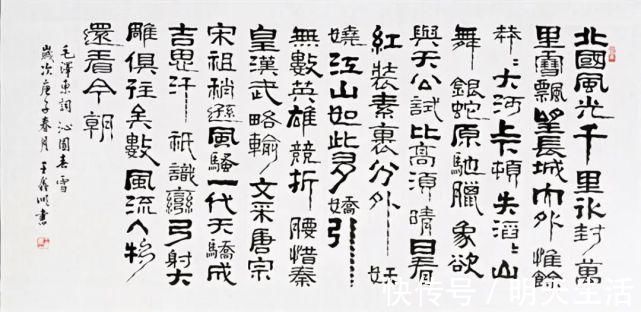 北國風光千里冰封萬
里雪飄望長城內外惟餘
莽〻大河上下頓失滔〻山
舞銀蛇原馳臘象欲
與天公試比高須晴日看
紅裝素裏分外妖
嬈江山如此多嬌引
無數英雄競折腰惜秦
皇漢武略輸文采唐宗
宋祖稍遜風騷一代天驕成
吉思汗祇識彎弓射大
雕俱往矣數風流人物
還看今朝
毛澤東詞 沁園春雪
歲次庚子春月 王 書
快传号/明天生活